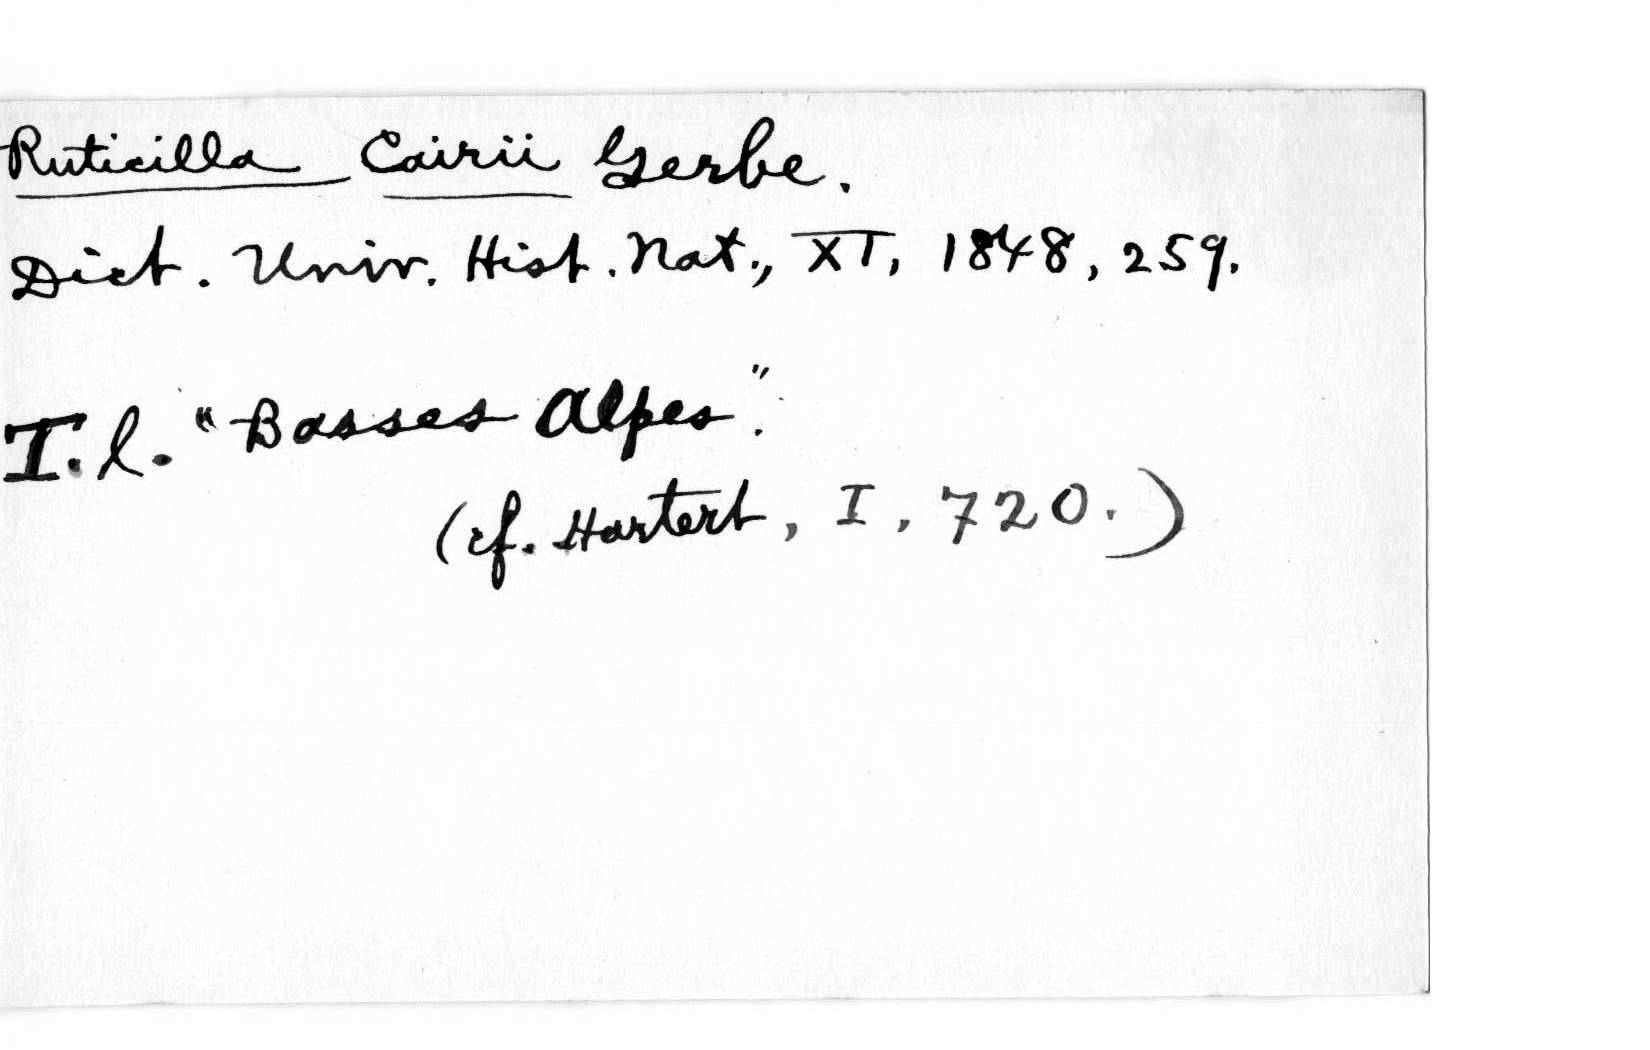 Ruticilla Cairii Gerbe.
Dict. Univ. Hist. Nat., XI, 1848, 259.
T. l. "Basses Alpes".
(cf. Hartert, I, 720.)